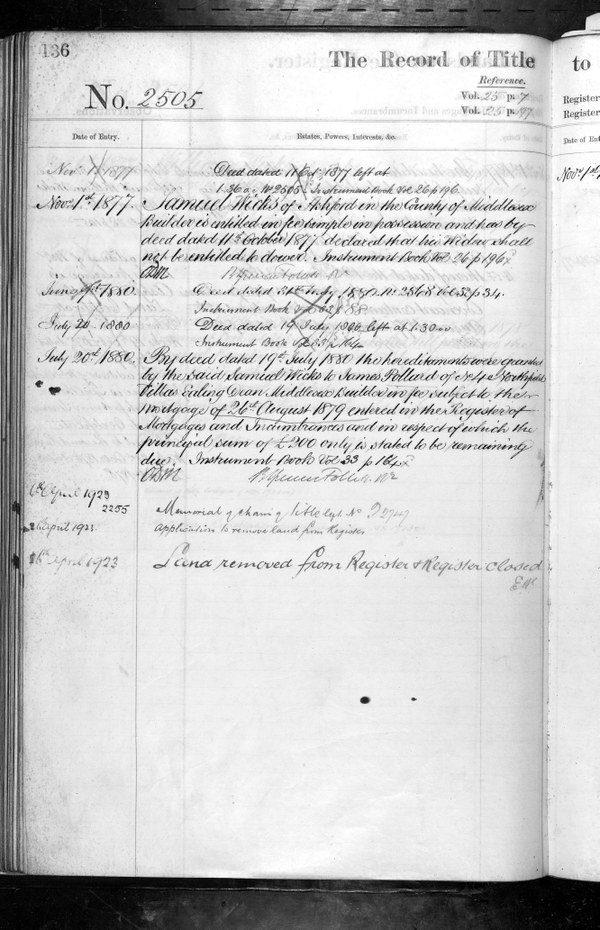 136
The Record of Title
to
Reference.
Vol. 25 p. 7
Vol. 25 p. 97
No. 2505
Register
Register
Date of Entry.
Estates, Powers, Interests, &c.
Date of En
Nov. 1. 1877
Deed dated 11 Oct 1877 left at
1.36 No 2505 Instrument Book Vol 26 p 196
Nov. 1st 1877.
Samuel Wicks of Ashford in the County of Middlesex
Nov. 1st,
Builder is entitled in fee simple in possession and has by
deed dated 11th October 1877 declared that his widow shall
not be entitled to dower. Instrument Book Vol 26 p 196
1880.
Deed dated 1880 No. 2868 Vol 32 p 34.
Instrument Book
July 20. 1880
Deed dated 19 July 1880 left at 1.30
Instrument Book Vol 33 p 164
July 20th 1880.
By deed dated 19th July 1880 the hereditaments were granted
by the said Samuel Wicks to James Pollard of No 4 Northfield
Villas Ealing Dean Middlesex Builder in fee subject to the
mortgage of 26th August 1879 entered in the Register of
Mortgages and Incumbrances and in respect of which the
principal sum of £200 only is stated to be remaining
due. Instrument Book Vol 33 p 164
6th April 1923
2255
Memorial of chain of title No
April 192
Application to remove land from Register
16th April 1923
Land removed from Register & Register closed